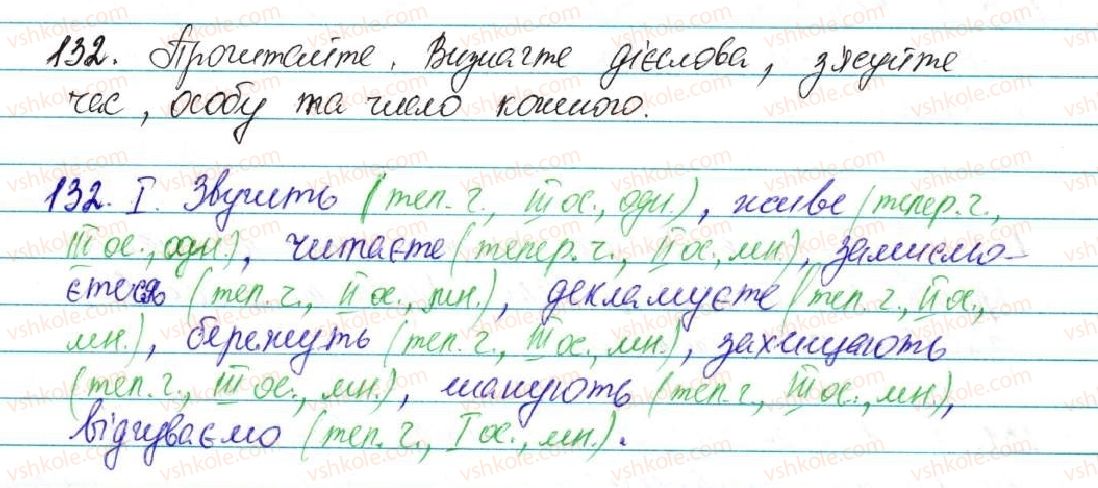 132. Прочитайте. Визначте дієслова, з'ясуйте
час, особу та число кожного.
132. I. Звучить (теп. ч., III ос., одн.), живе (тепер. ч.,
III ос., одн.), читаєте (тепер. ч., II ос., мн.), замисло-
єтеся (теп. ч., II ос., мн.), декламуєте (теп. ч., II ос.,
мн.), бережуть (теп. ч., III ос., мн.), захищають
(теп. ч., III ос., мн.), шанують (теп. ч., III ос., мн.),
відчуваємо (теп. ч., I ос., мн.).
vshkole.com